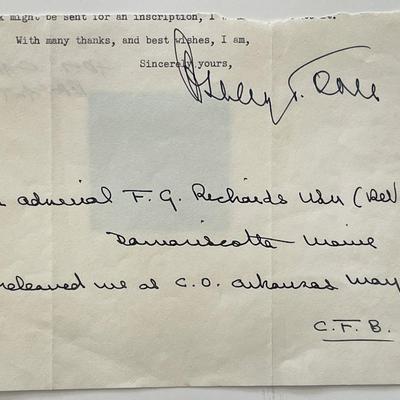 might be sent for an inscription, I
With many thanks, and best wishes, I am,
Sincerely yours,
admiral F. G. Richards USN (Ret
Damariscotta Maine
releaved me as C.O. Arkansas May
C.F.B.